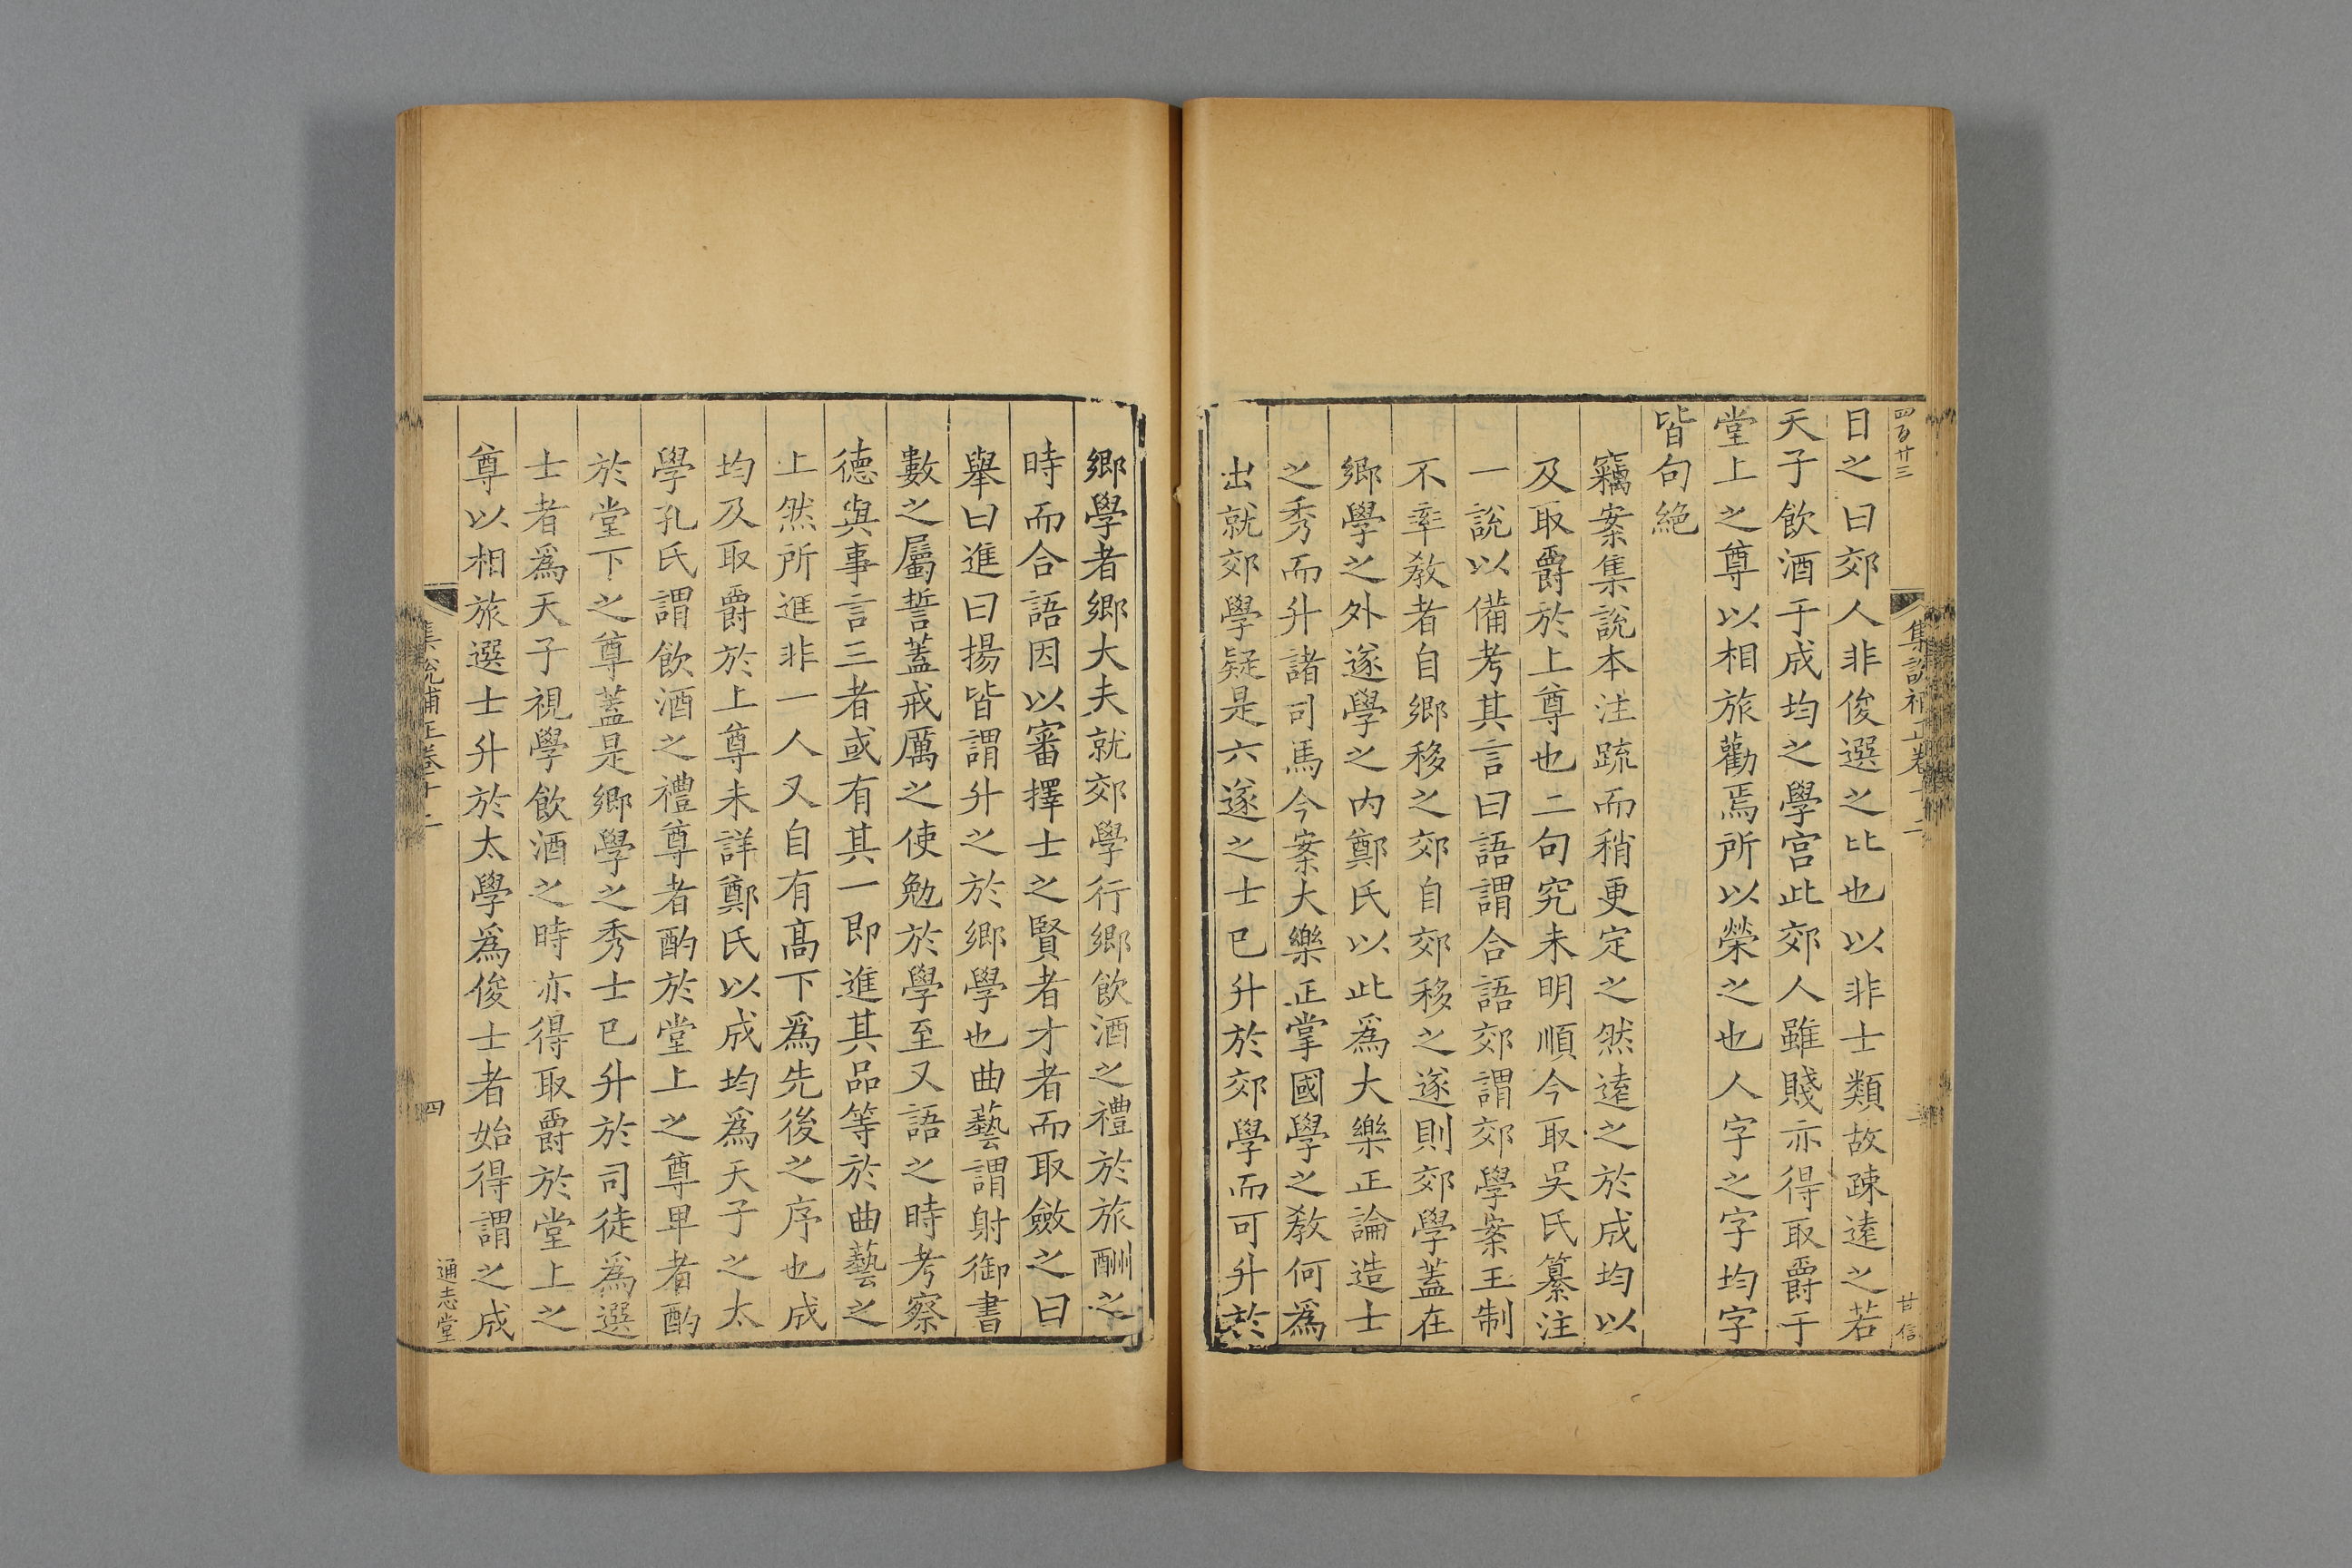 四百廿三
集說補正卷十二
三
甘信
日之曰郊人非俊選之比也以非士類故疎逺之若
天子飲酒于成均之學宫此郊人雖賤亦得取爵于
堂上之尊以相旅勸焉所以榮之也人字之字均字
皆句絶
竊案集說本注疏而稍更定之然逺之於成均以
及取爵於上尊也二句究未明順今取吳氏纂注
一說以備考其言曰語謂合語郊謂郊學案王制
不率敎者自鄉移之郊自郊移之遂則郊學蓋在
鄉學之外遂學之内鄭氏以此爲大樂正論造士
之秀而升諸司馬今案大樂正掌國學之敎何爲
出就郊學疑是六遂之士已升於郊學而可升於
鄉學者鄉大夫就郊學行鄉飲酒之禮於旅酬之
時而合語因以審擇士之賢者才者而取斂之曰
舉曰進曰揚皆謂升之於鄉學也曲藝謂射御書
數之屬誓蓋戒厲之使勉於學至又語之時考察
德與事言三者或有其一即進其品等於曲藝之
上然所進非一人又自有髙下爲先後之序也成
均及取爵於上尊未詳鄭氏以成均爲天子之太
學孔氏謂飲酒之禮尊者酌於堂上之尊卑者酌
於堂下之尊蓋是鄉學之秀士已升於司徒爲選
士者爲天子視學飲酒之時亦得取爵於堂上之
尊以相旅選士升於太學爲俊士者始得謂之成
集說補正卷十二
四
通志堂